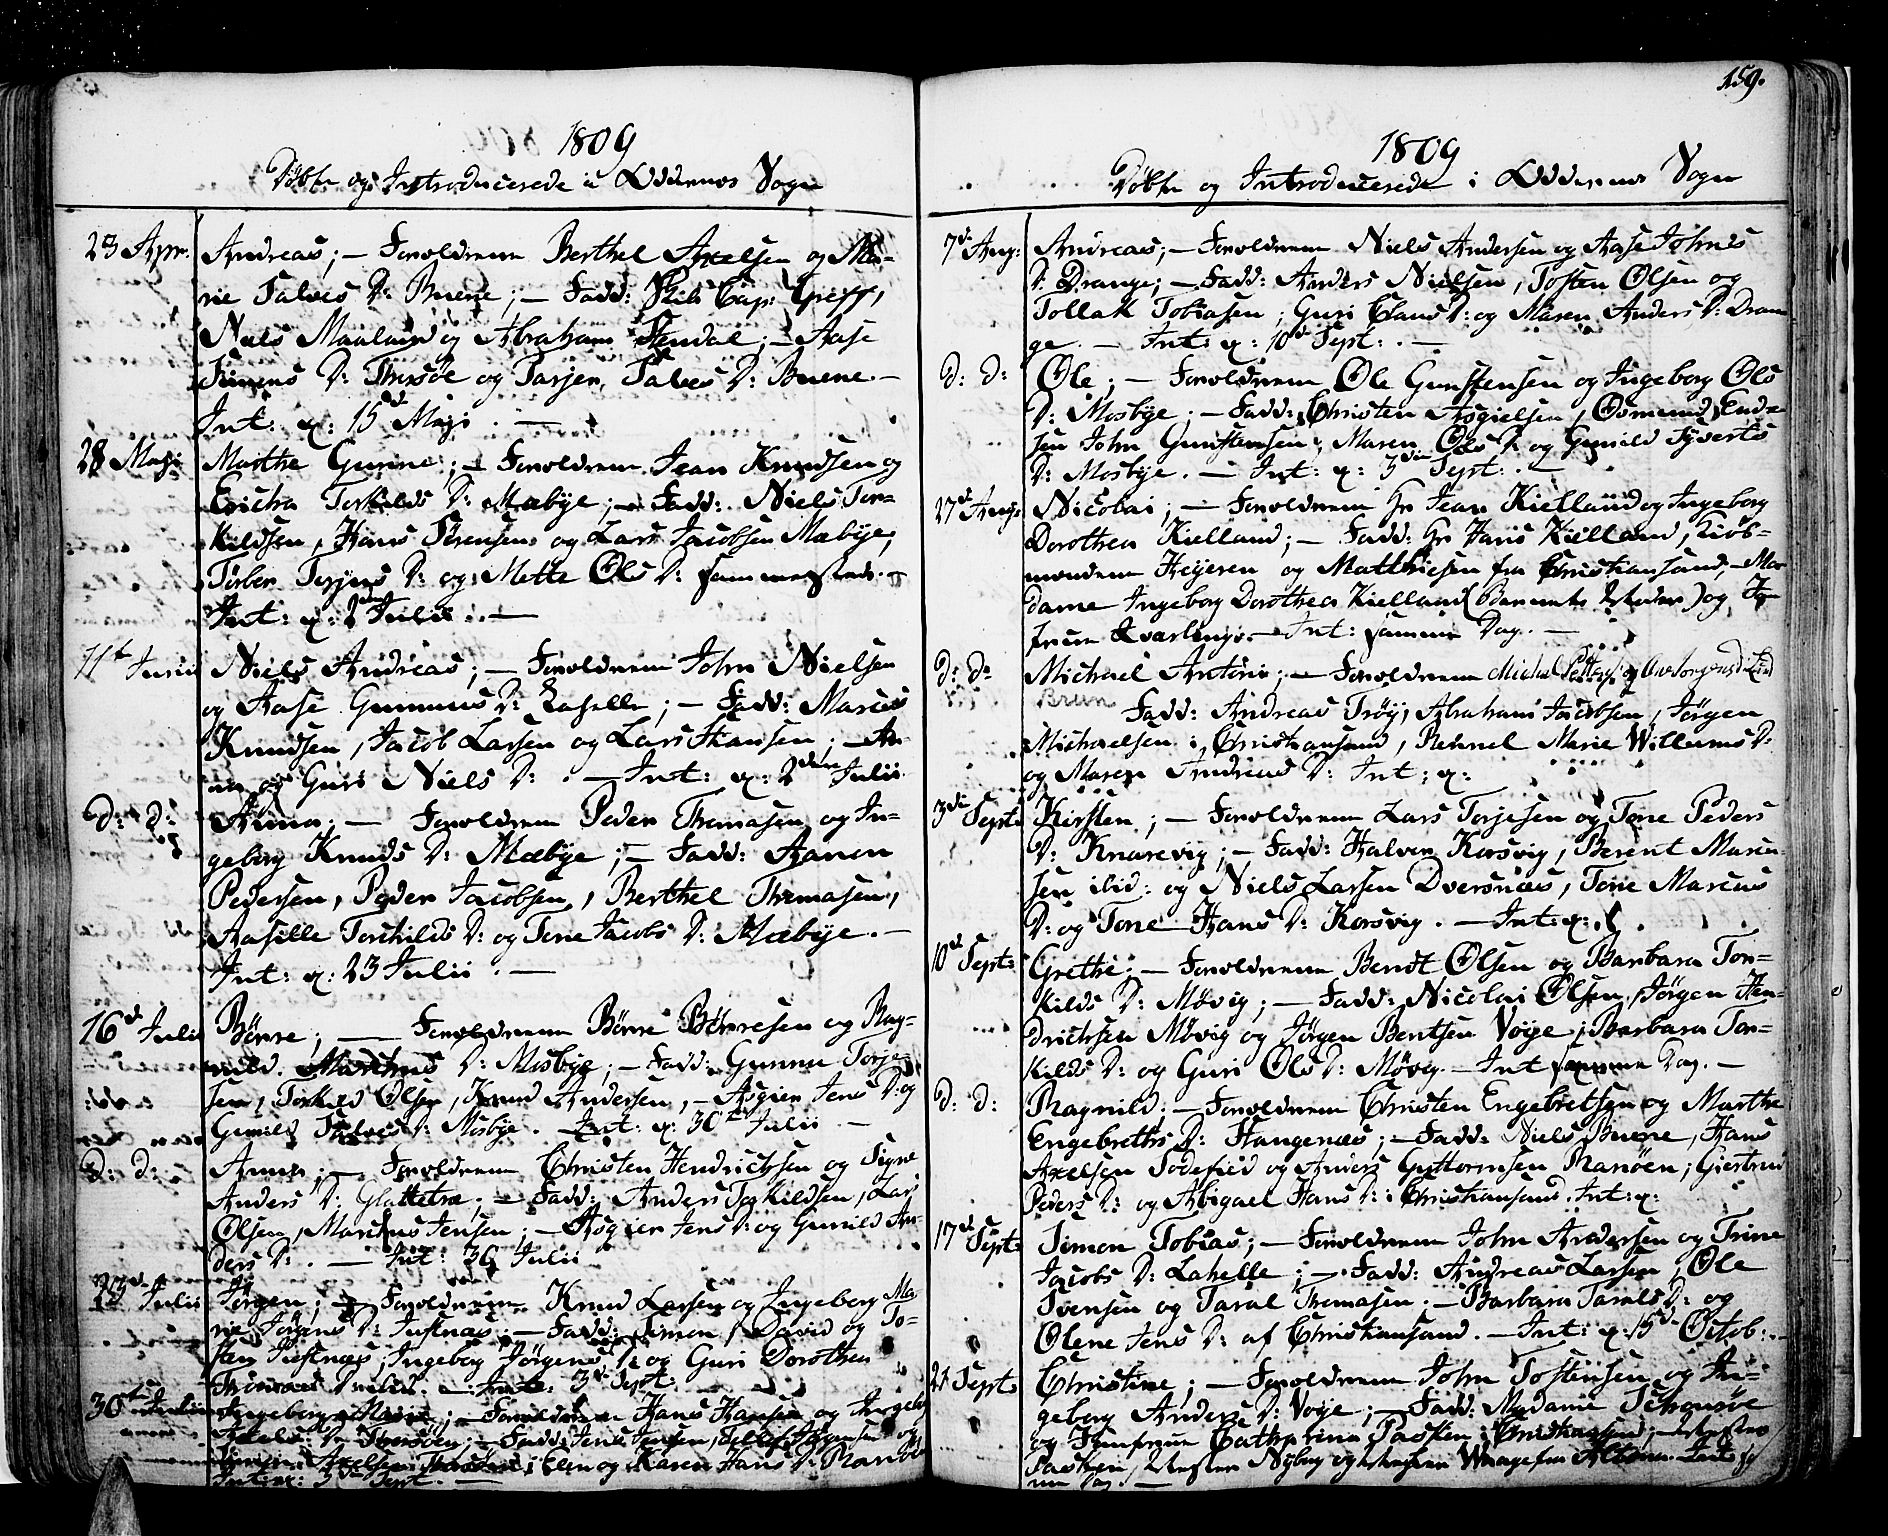 1809
Døbte og Introducerede i Oddernes Sogn
23 Apr. Andreas; — Forældrene Berthel Axelsen og Ma-
rie Salves D: Buene; — Fadd: Cap: Greff,
Niels Maaland og Abraham Stendal; — Aase
Simens D: Thersøe og Tarjer Salves D: Buene. —
Int: x: 15d Maji. —
28 Maji Marthe Gurine; — Forældrene Jean Knudsen og
Ericha Torkilds D: Mæbye; — Fadd: Niels Tor-
kildsen, Hans Sørensen og Lars Jacobsen Mæbye;
Torber Terjers D: og Mette Ols D: sammesteds. —
Int: x: 2den Julii. —
11t Junii Niels Andreas; — Forældrene John Nielsen
og Aase Gunnus D: Lahelle; — Fadd: Marcus
Knudsen, Jacob Larsen og Lars Hansen; — An-
na og Guri Niels D: . — Int: x: 2den Julii.
D: D: Anna; — Forældrene Peder Thomasen og In-
geborg Knuds D: Mæbye; — Fadd: Aanen
Pedersen, Peder Jacobsen, Berthel Thomasen,
Aasille Torchilds D: og Tone Jacobs D: Mæbye. —
Int: x: 23 Julii. —
16d Julii Børre; — Forældrene Børre Børresen og Rag-
nild Marthus D: Mosbye; — Fadd: Gunnu Torje-
sen, Torkild Olsen, Knud Andersen, — Asgier Jens D: og
Gunild Salves D: Mosbye. Int: x: 30te Julii. —
D: D: Anna; — Forældrene Christen Hendrichsen og Signe
Anders D: Glattetræ. — Fadd: Anders Torkildsen, Lars
Olsen, Marthus Jensen; — Asgier Jens D: og Gunild An-
ders D: . — Int: 30 Julii
23d Julii Jørgen; — Forældrene Knud Larsen og Ingeborg Ma-
rie Jørgens D: Justnæs. — Fadd: Simon, David og To-
sten Justnæs; Ingeborg Jørgens D: og Guri Dorothea
Int: 3d Sept:
30te Julii Ingeborg Marie; — Forældrene Hans Hansen og Ingeborg
D: — Fadd: Jens Jensen, Hansen og
Axelsen og Karen Hans D: Randø
Int: x: 3d Sept. —
159.
1809
Døbte og Introducerede i Oddernes Sogn
7d Aug: Andreas; — Forældrene Niels Andersen og Aase Johnes
D: Drange; — Fadd: Anders Nielsen, Tosten Olsen og
Tollak Tobiasen; Guri Claus D: og Maren Anders D: Dran-
ge. — Int: x: 10d Sept: . —
D: D: Ole; — Forældrene Ole Gunstensen og Ingeborg Ols
D: Mosbye. — Fadd: Christen Asgielsen, Osmund
sen John Gunstensen, Maren Ols D: og Gunild Syverts
D: Mosbye. — Int: x: 3die Sept: . —
27d Aug: Nicolai; — Forældrene Hr Jean Kielland og Ingeborg
Dorothea Kielland; — Fadd: Hr Hans Kielland, Kiøb-
mændene Heyeren og Matthiesen fra Christiansand, — Ma-
dame Ingeborg Dorothea Kielland (Barnets Moder) og Jom-
fruen Kvarling. — Int: samme Dag. —
D: D: Michael Antoni; — Forældrene Michel
Brun
Fadd: Andreas Trøy, Abraham Jacobsen, Jørgen
Michaelsen i Christiansand, Rennel Marie Willums D:
og Maren Andreas D: Int: x:
3die Sept: Kirsten; — Forældrene Lars Torjesen og Tone Peders
D: Knarevig; — Fadd: Halvor Korsvig, Berent Marcu-
sen ibid: og Niels Larsen Dversnæs, Tone Marcus
D: og Tone Hans D: Korsvig. — Int: x:
10d Sept: Grethe; — Forældrene Bendt Olsen og Barbara Tor-
kilds D: Møvig; — Fadd: Nicolai Olsen, Jørgen Hen-
drichsen Møvig og Jørgen Bentsen Voye; Barbara Tor-
kilds D: og Guri Ols D: Møvig. — Int samme Dag. —
D: D: Ragnild: — Forældrene Christen Engebretsen og Marthe
Engebreths D: Stangenæs; — Fadd: Niels Buene, Hans
Axelsen Sodefied og Anders Guttormsen Ranøen; Giertrud
Peders D: og Abigael Hans D: i Christiansand. Int: x:
17d Sept: Simon Tobias; — Forældrene John Andersen og Trine
Jacobs D: Lahelle; — Fadd: Andreas Larsen, Ole
Svensen og Taral Thomasen. — Barbara Tarals D: og
Olene Jens D: af Christiansand. — Int: x: 15d Octob: . —
21 Sept: Christine; — Forældrene John Tostensen og In-
geborg Anders D: Voye; — Fadd: Madame Schousøe
og Jomfruen Catharina Pasken i Christiansand,
Pasken, Nyborg og Waage fra Altona. Int:
me Dag. —